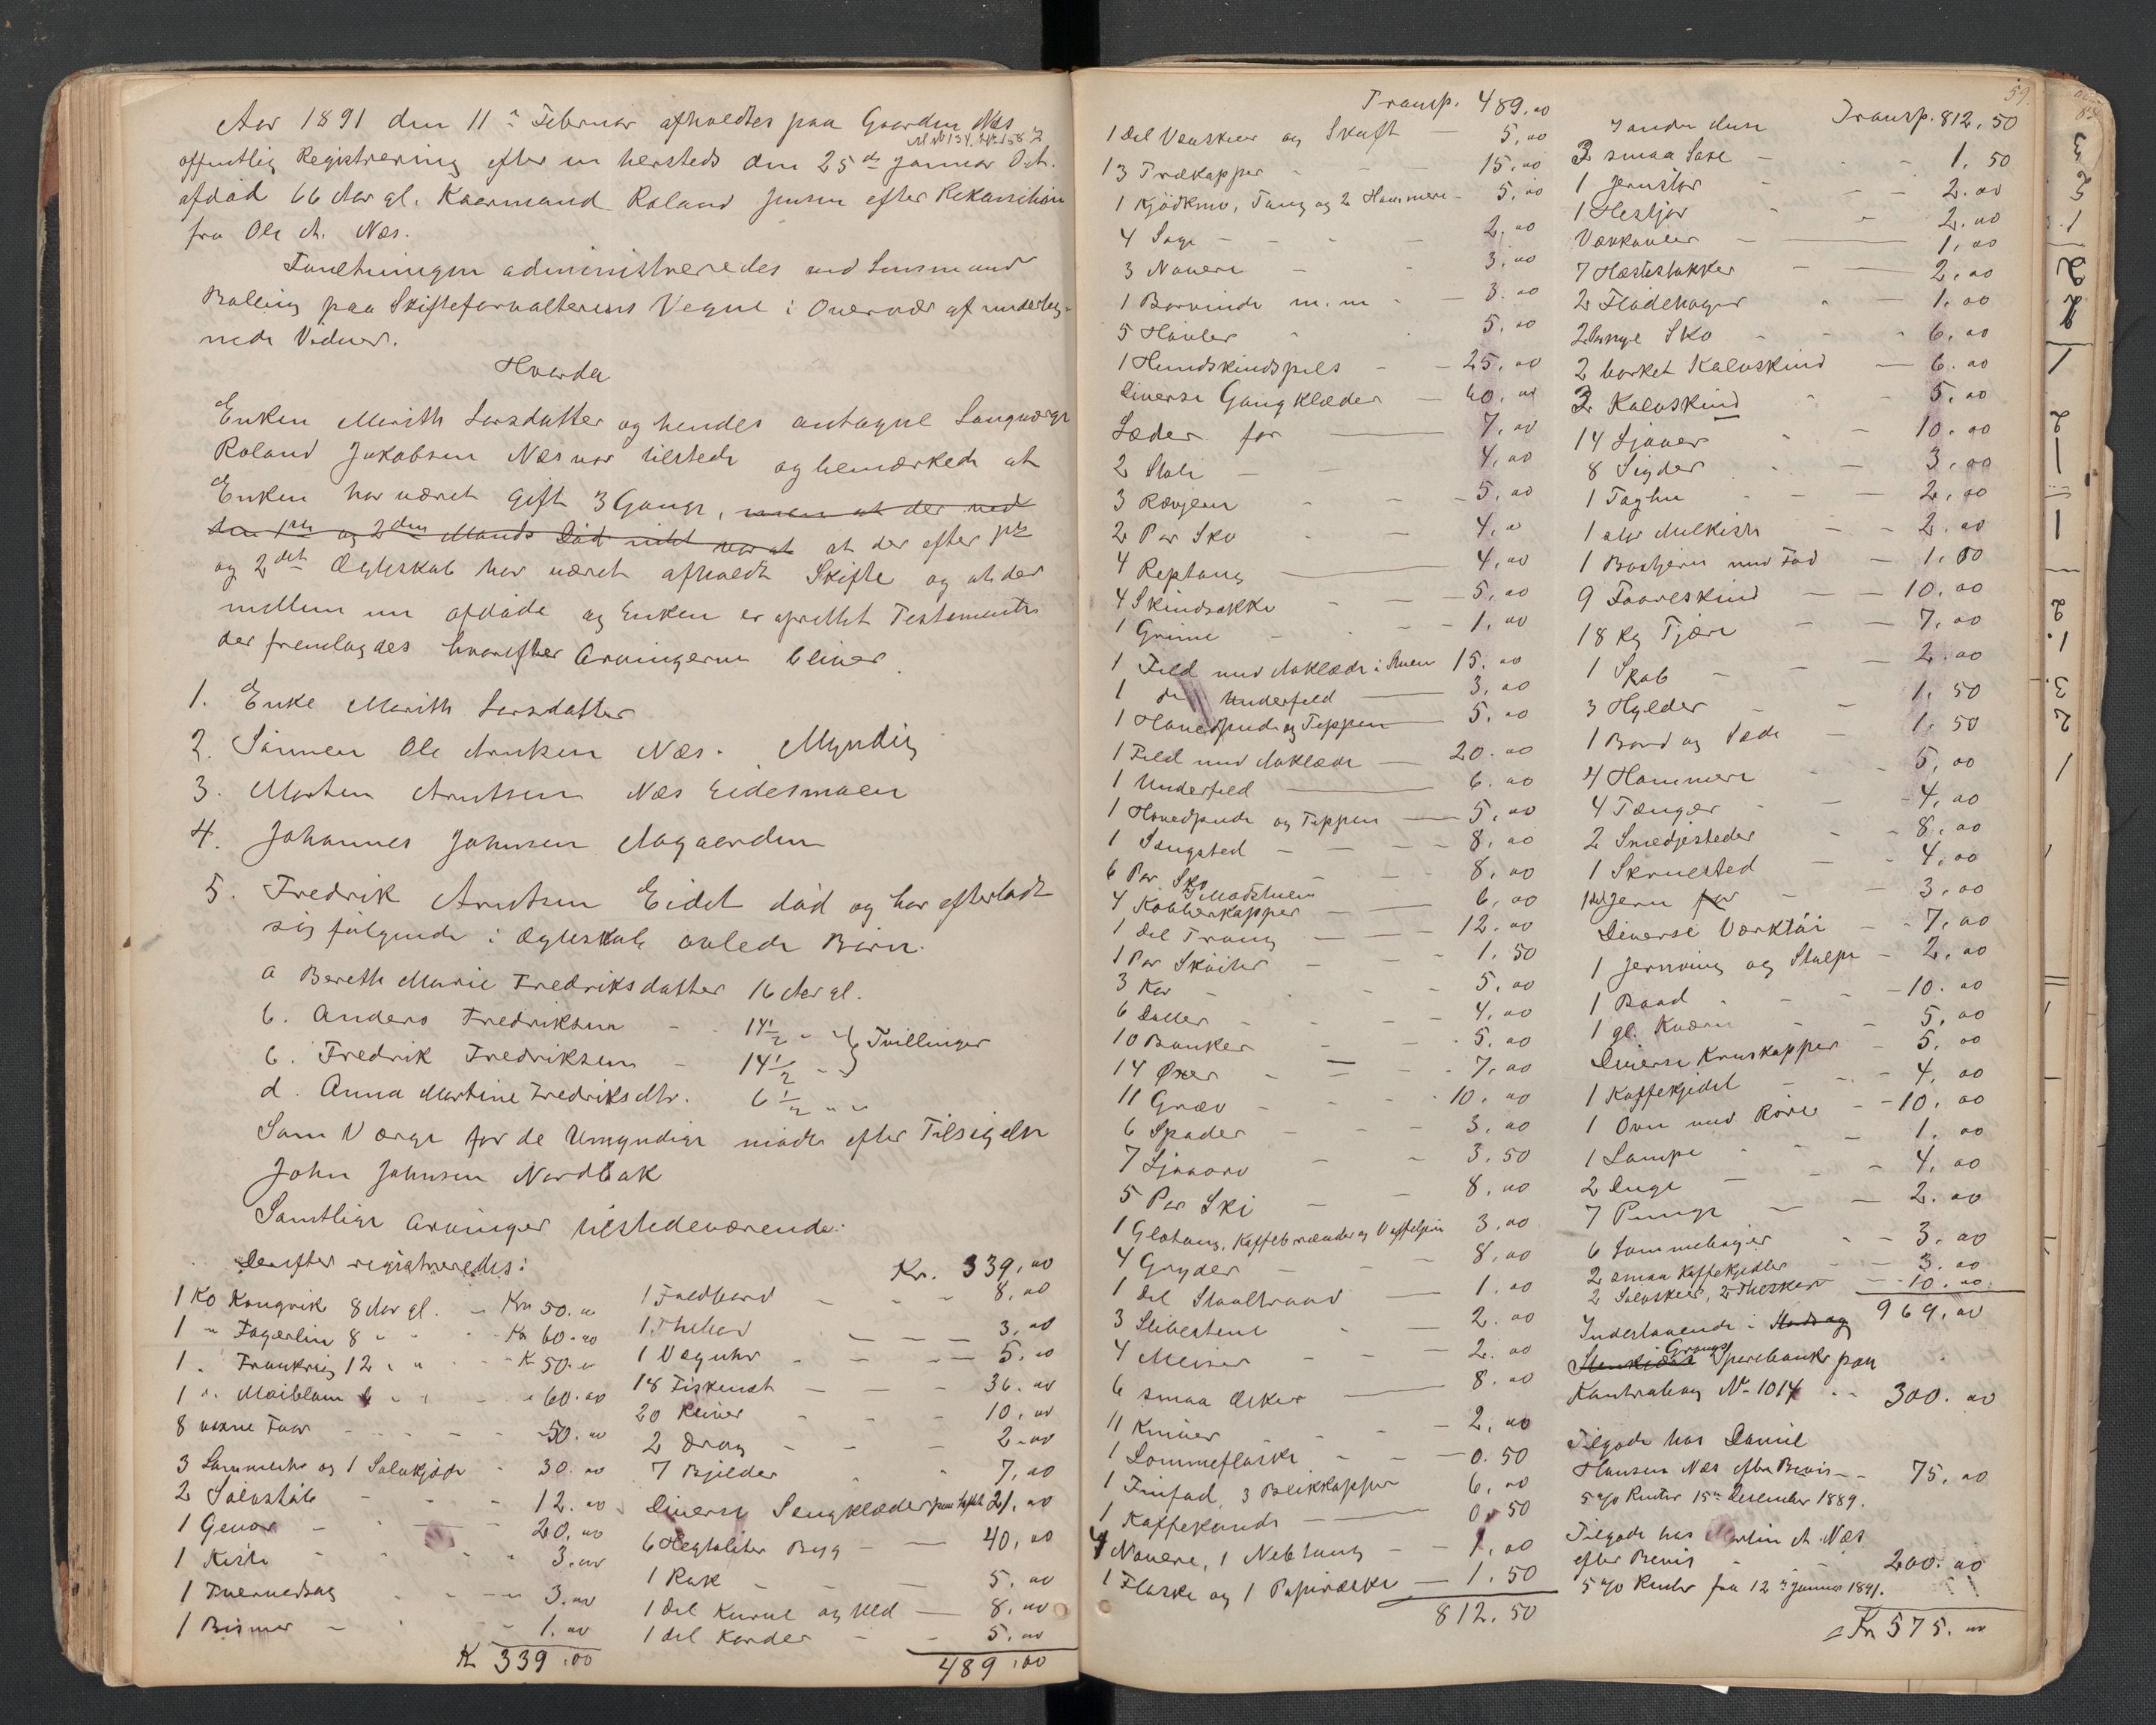 Aar 1891 den 11te Februar afholdtes paa Gaarden Næs
M. No 134, 
offentlig Registrering efter en hersteds den 25de Januar
afdød 66 Aar gl. Kaarmand Roland Jensen efter Rekvisition
fra Ole A. Næs.
Forretningen administreredes ved Lensmand
Balling paa Skifteforvalterens Vegne i Overvær af underteg-
nede Vidner.
Hvorda
Enken Marith Larsdatter og hendes antagne Laugværge
Roland Jakobsen Næs var tilstede og bemærkede at
Enken har været gift 3 Gange, men at der ved
den 1ste og 2den Mands Død intet var at at der efter 1ste
og 2det Ægteskab har været afholdt Skifte og at der
mellem nu afdøde og Enken er oprettet Testamente
der fremlagdes hvorefter Arvingerne bliver.
1. Enke Marith Larsdatter
2. Sønnen Ole Arntsen Næs. Myndig
3. Morten Arntsen Næs Eidesmoen
4. Johannes Johnsen Aagaarden
5. Fredrik Arntsen Eidet død og har efterladt
sig følgende i Ægteskab avlede Børn.
a Bereth Marie Fredriksdatter 16 Aar gl.
b. Anders Fredriksen - 14 1/2 " " } Tvillinger
c. Fredrik Fredriksen - 14 1/2 " "
d. Anna Martine Fredriksdtr. 6 1/2 " "
Som Værge for de Umyndige mødte efter Tilsigelse
John Johnsen Nordbak
Samtlige Arvinger tilstedeværende.
Derefter registreredes:
1 Ko Kongrik 8 Aar gl. - Kr 50.00
1 " Fagerlin 8 " " - Kr 60.00
1 " Frankrig 12 " " - Kr 50.00
1 " Maiblom 6 " " - " 60.00
8 voxne Faar - - - 50.00
3 Lammehr og 1 - 30.00
2 - 12.00
1 Gevær - 20.00
1 Kiste - 3.00
1 Tvervedsag - 3.00
1 Bismer - 1.00
K 339.00
Kr. 339,00
1 Foldbord - 8,00
1 - 3,00
1 Væguhr - 5,00
18 Fiskenæt - 36.00
20 Kliver - 10,00
2 Drag - 2.00
7 Bjelder - 7,00
Diverse Sengklæder 21,00
6 Hegtoliter Byg - 40,00
1 Rok - 5.00
1 Del Kurve og Uld - 8,00
1 del Karder - 5.00
489.00
Transp. 489,00
1 Del og Skaft 5,00
13 Trækopper - 15.00
1 Kjødkniv, Tang og 2 Hammere - 5,00
4 Sage - 2.00
3 Navere - 3,00
1 Borvinde m.m - 3.00
5 Høvler - 5.00
1 Hundskindspels - 25,00
Diverse Gangklæder - 40,00
Læder for - 7,00
2 Stole - 4,00
3 - 5,00
2 Par Sko - 4,00
4 Reptang - 4,00
4 Skindsække - 5,00
1 Grime - 1,00
1 Feld med Aaklæde i Stuen 15.00
1 do Underfeld - 3,00
1 Hovedpude og Teppen - 5,00
1 Feld med Aaklæde - 20.00
1 Underfeld - 6.00
1 Hovedpude og Teppen - 5,00
1 Sengsted - 8,00
6 Par Ski - 8,00
I Madstuen
4 Kobberkopper - 6,00
1 Del Traug - 12.00
1 Par Skøiter - 1.50
3 Kar - 5,00
6 Daller - 4,00
10 Bunker - 5.00
14 Øxer - 7,00
11 Græv - 10.00
6 Spader - 3.00
7 Ljaaorv - 3.50
5 Par Ski - 8,00
1 Glotang, Kaffebrænder og Vaffeljern 3.00
4 Gryder - 8,00
1 Del Staaltraad - 1.00
3 Slibestene - 2.00
4 Meiser - 2.00
6 smaa Æsker - 8.00
11 Kniver - 2,00
1 Lommeflaske - 0.50
1 Tinfad, 3 Blikkopper 6,00
1 Kaffekande - 0,50
4 Navere, 1 Nebtang - 1,00
1 Flaske og 1 Papiræske - 1.50
812.50
59.
Transp. 812,50
3 smaa Saxe - 1.50
1 Jernstør - 2.00
1 Hestjor - 2.00
Vævkavler - 1,00
7 Hæstestakker - 2,00
2 Flødebøger - 1.00
2 Par nye Sko - 6,00
2 barket Kalvskind - 6.00
3 Kalvskind - 5.00
14 Ljaaer - 10.00
8 Sigder - 3,00
1 - 2,00
1 - 2.00
1 med Fad - 1.00
9 Faareskind - 10.00
18 Kg Tjære - 7,00
1 Skab - 2.00
3 Hylder - 1,50
1 Bord og Sæde - 1,50
4 Hammere - 5,00
4 Tænger - 4,00
2 Smedjesteder - 8.00
1 Skruested - 4,00
1 del Jern for - 3.00
Diverse Værktøi - 7,00
1 Jernring og Stolpe - 2,00
1 Baad - 10.00
1 gl. Kværn - 5,00
Diverse Kruskopper - 5.00
1 Kaffekjedel - 4,00
1 Ovn med Røre - 10.00
1 Lampe - 1.00
2 Duge - 4,00
7 Punge - 2.00
6 Lommebøger - 3.00
2 smaa Kaffekjedler - 3.00
2 Sølvskeer, 2 Theskeer - 10.00
969,00
Indestaaende i
Grong Sparebank paa
Kontrabog No 1014 - 300.00
Tilgode hos Daniel
Hansen Næs efter Bevis - 75.00
5 % Renter 15de Desember 1889.
Tilgode hos Martin A. Næs
efter Bevis - 200.00
5 % Renter fra 12te Januar 1891.
Kr 575.00